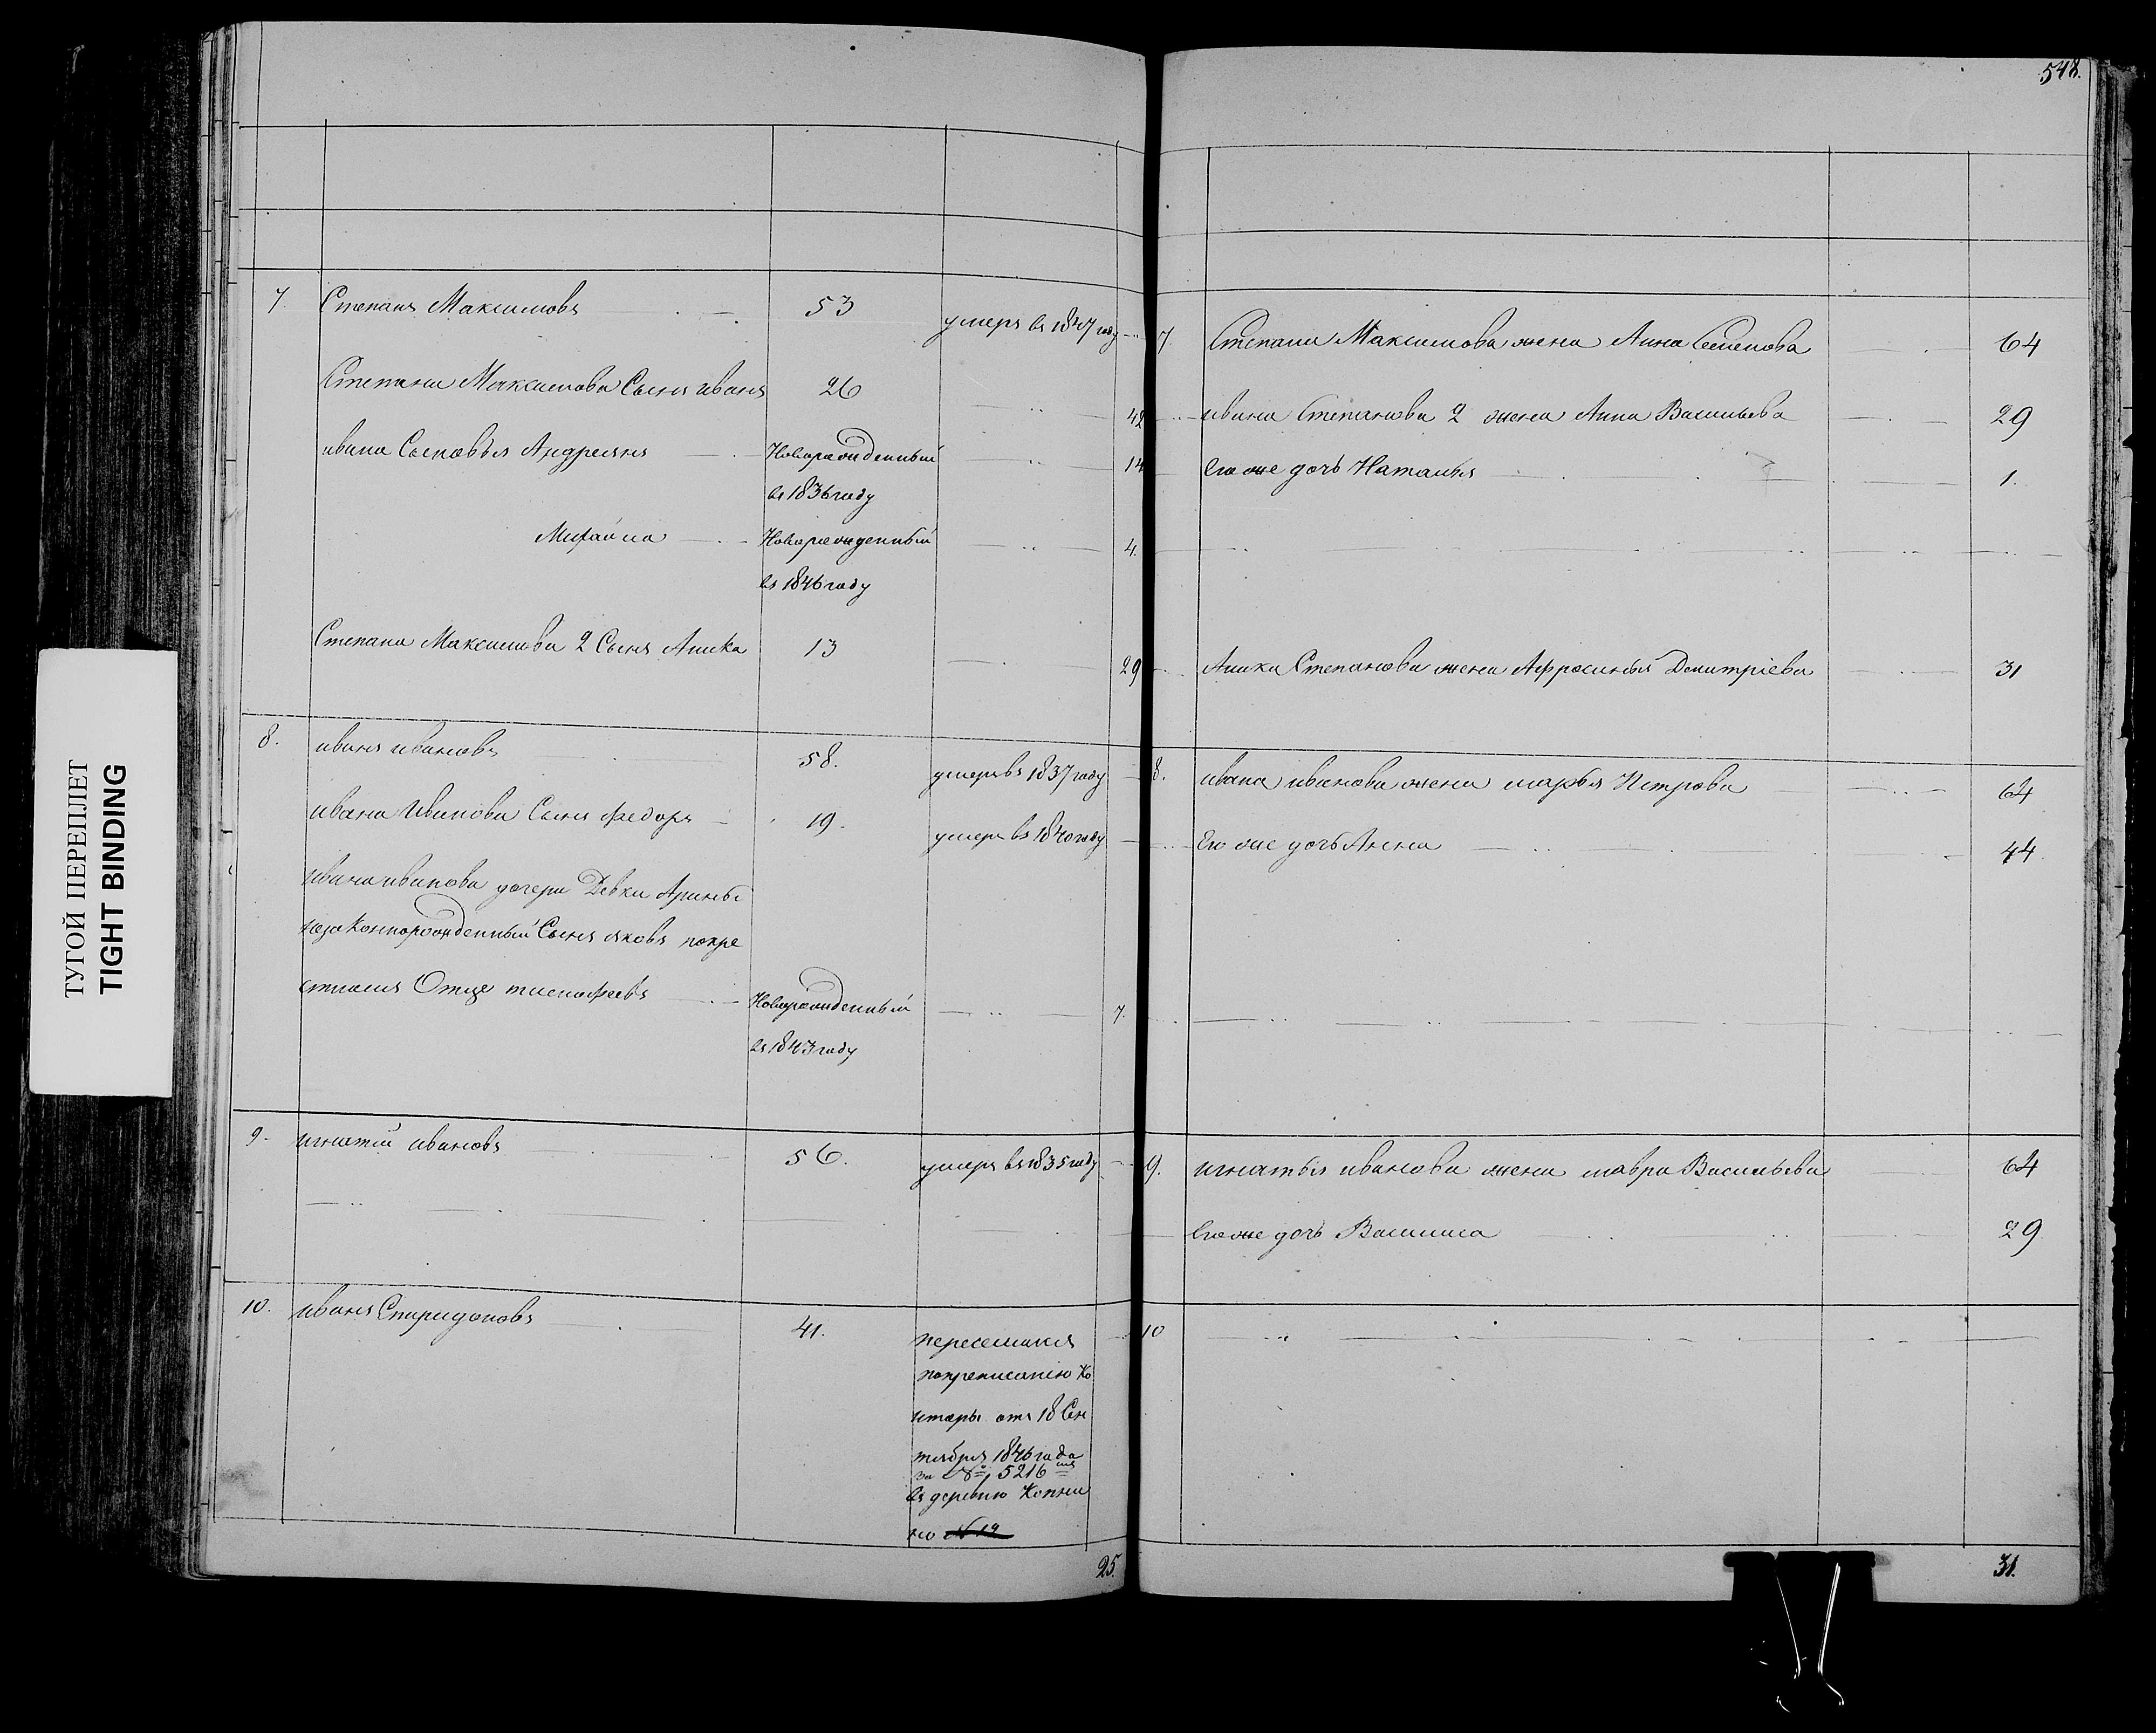 548.
7. Степанъ Максимовъ 53 умеръ въ 1847 году
Степана Максимова Сынъ иванъ 26 42
ивана Сыновья Андреянъ Новорожденный 14
въ 1836 году
Михайла Новорожденный 4.
въ 1846 году
Степана Максимова 2 Сынъ Аника 13 29
8. иванъ ивановъ 58. умеръ въ 1837 году
ивана Иванова Сынъ федоръ 19. умеръ въ 1840 году
ивана иванова дочери Девки Арины
незаконнорожденный Сынъ яковъ покре
стномъ Отце Новорожденный 7.
въ 1843 году
9. игнатій ивановъ 56. умеръ въ 1835 году
10. иванъ Спиридоновъ 41. переселился
попредписанію Ко
нторы отъ 18 Сен
тября 1846 года
за № 5216
въ деревню
но № 19
25.
7 Степана Максимова жена Анна Семенова 64
ивана Степанова 2 жена Анна Васильева 29
Его же дочь Наталья 1.
Аники Степанова жена Афросинья Дмитріева 31
8. ивана иванова жена марья Петрова 64
Его же дочь Анна 44
9. игнатья иванова жена мавра Васильева 64
Его же дочь Василиса 29
10
31.
ТУГОЙ ПЕРЕПЛЕТ
TIGHT BINDING